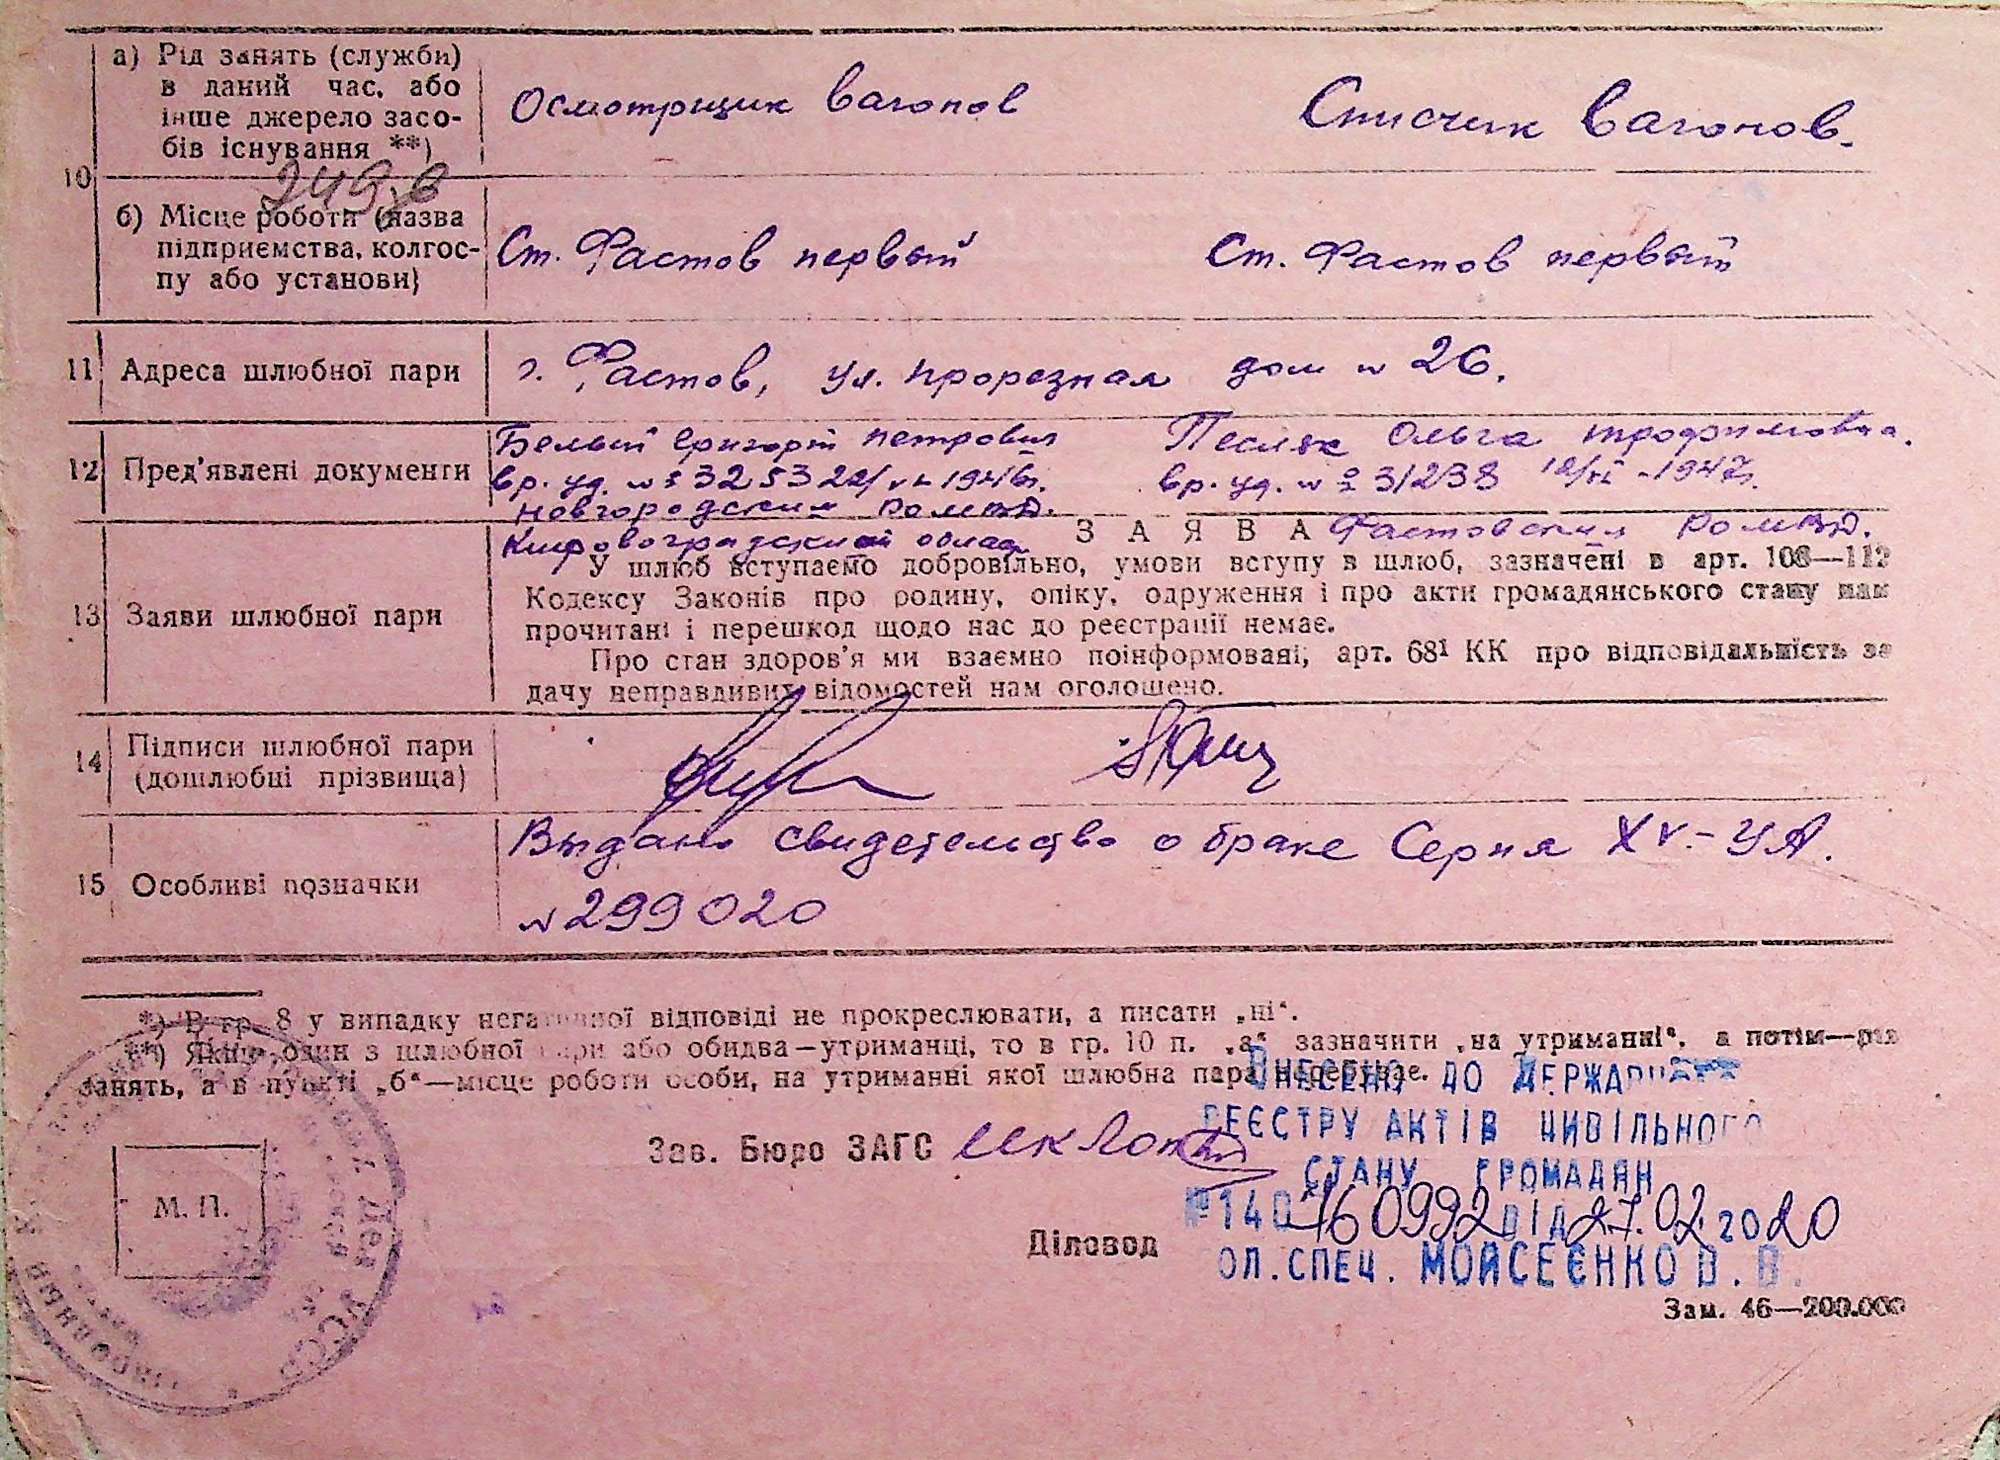 10
а) Рід занять (служби)
в даний час, або
інше джерело засо-
бів існування **)
Осмотрщик вагонов
Списчик вагонов.
б) Місце роботи (назва
підприємства, колгос-
пу або установи)
Ст. Фастов первый
Ст. Фастов первый
11 Адреса шлюбної пари
г. Фастов, ул. прорезная дом № 26.
12 Пред'явлені документи
Белый Григорий петрович
вр. уд. №
Новгородским РОМВД.
Кировоградской област
Песляк Ольга трофимовна.
вр. уд. № 31238
Фастовским РОМВД.
13 Заяви шлюбної пари
ЗАЯВА
У шлюб вступаємо добровільно, умови вступу в шлюб, зазначені в арт. 108—112
Кодексу Законів про родину, опіку, одруження і про акти громадянського стану нам
прочитані і перешкод щодо нас до реєстрації немає.
Про стан здоров'я ми взаємно поінформовані; арт. 68¹ КК про відповідальність за
дачу неправдивих відомостей нам оголошено.
14 Підписи шлюбної пари
(дошлюбні прізвища)
15 Особливі позначки
Выдано свидетельство о браке Серия XV-УА.
№ 299020
*) В гр. 8 у випадку негативної відповіді не прокреслювати, а писати „ні“.
**) Якщо один з шлюбної пари або обидва—утриманці, то в гр. 10 п. „а“ зазначити „на утриманні“, а потім—рід
занять, а в пункті „б“—місце роботи особи, на утриманні якої шлюбна пара перебуває.
Зав. Бюро ЗАГС
М. П.
Діловод
ВНЕСЕНО ДО ДЕРЖАВНОГО
РЕЄСТРУ АКТІВ ЦИВІЛЬНОГО
СТАНУ ГРОМАДЯН
№140 160992 ВІД 27.02.2020
ОЛ.СПЕЦ. МОЙСЕЄНКО В. В.
Зам. 46—200.000